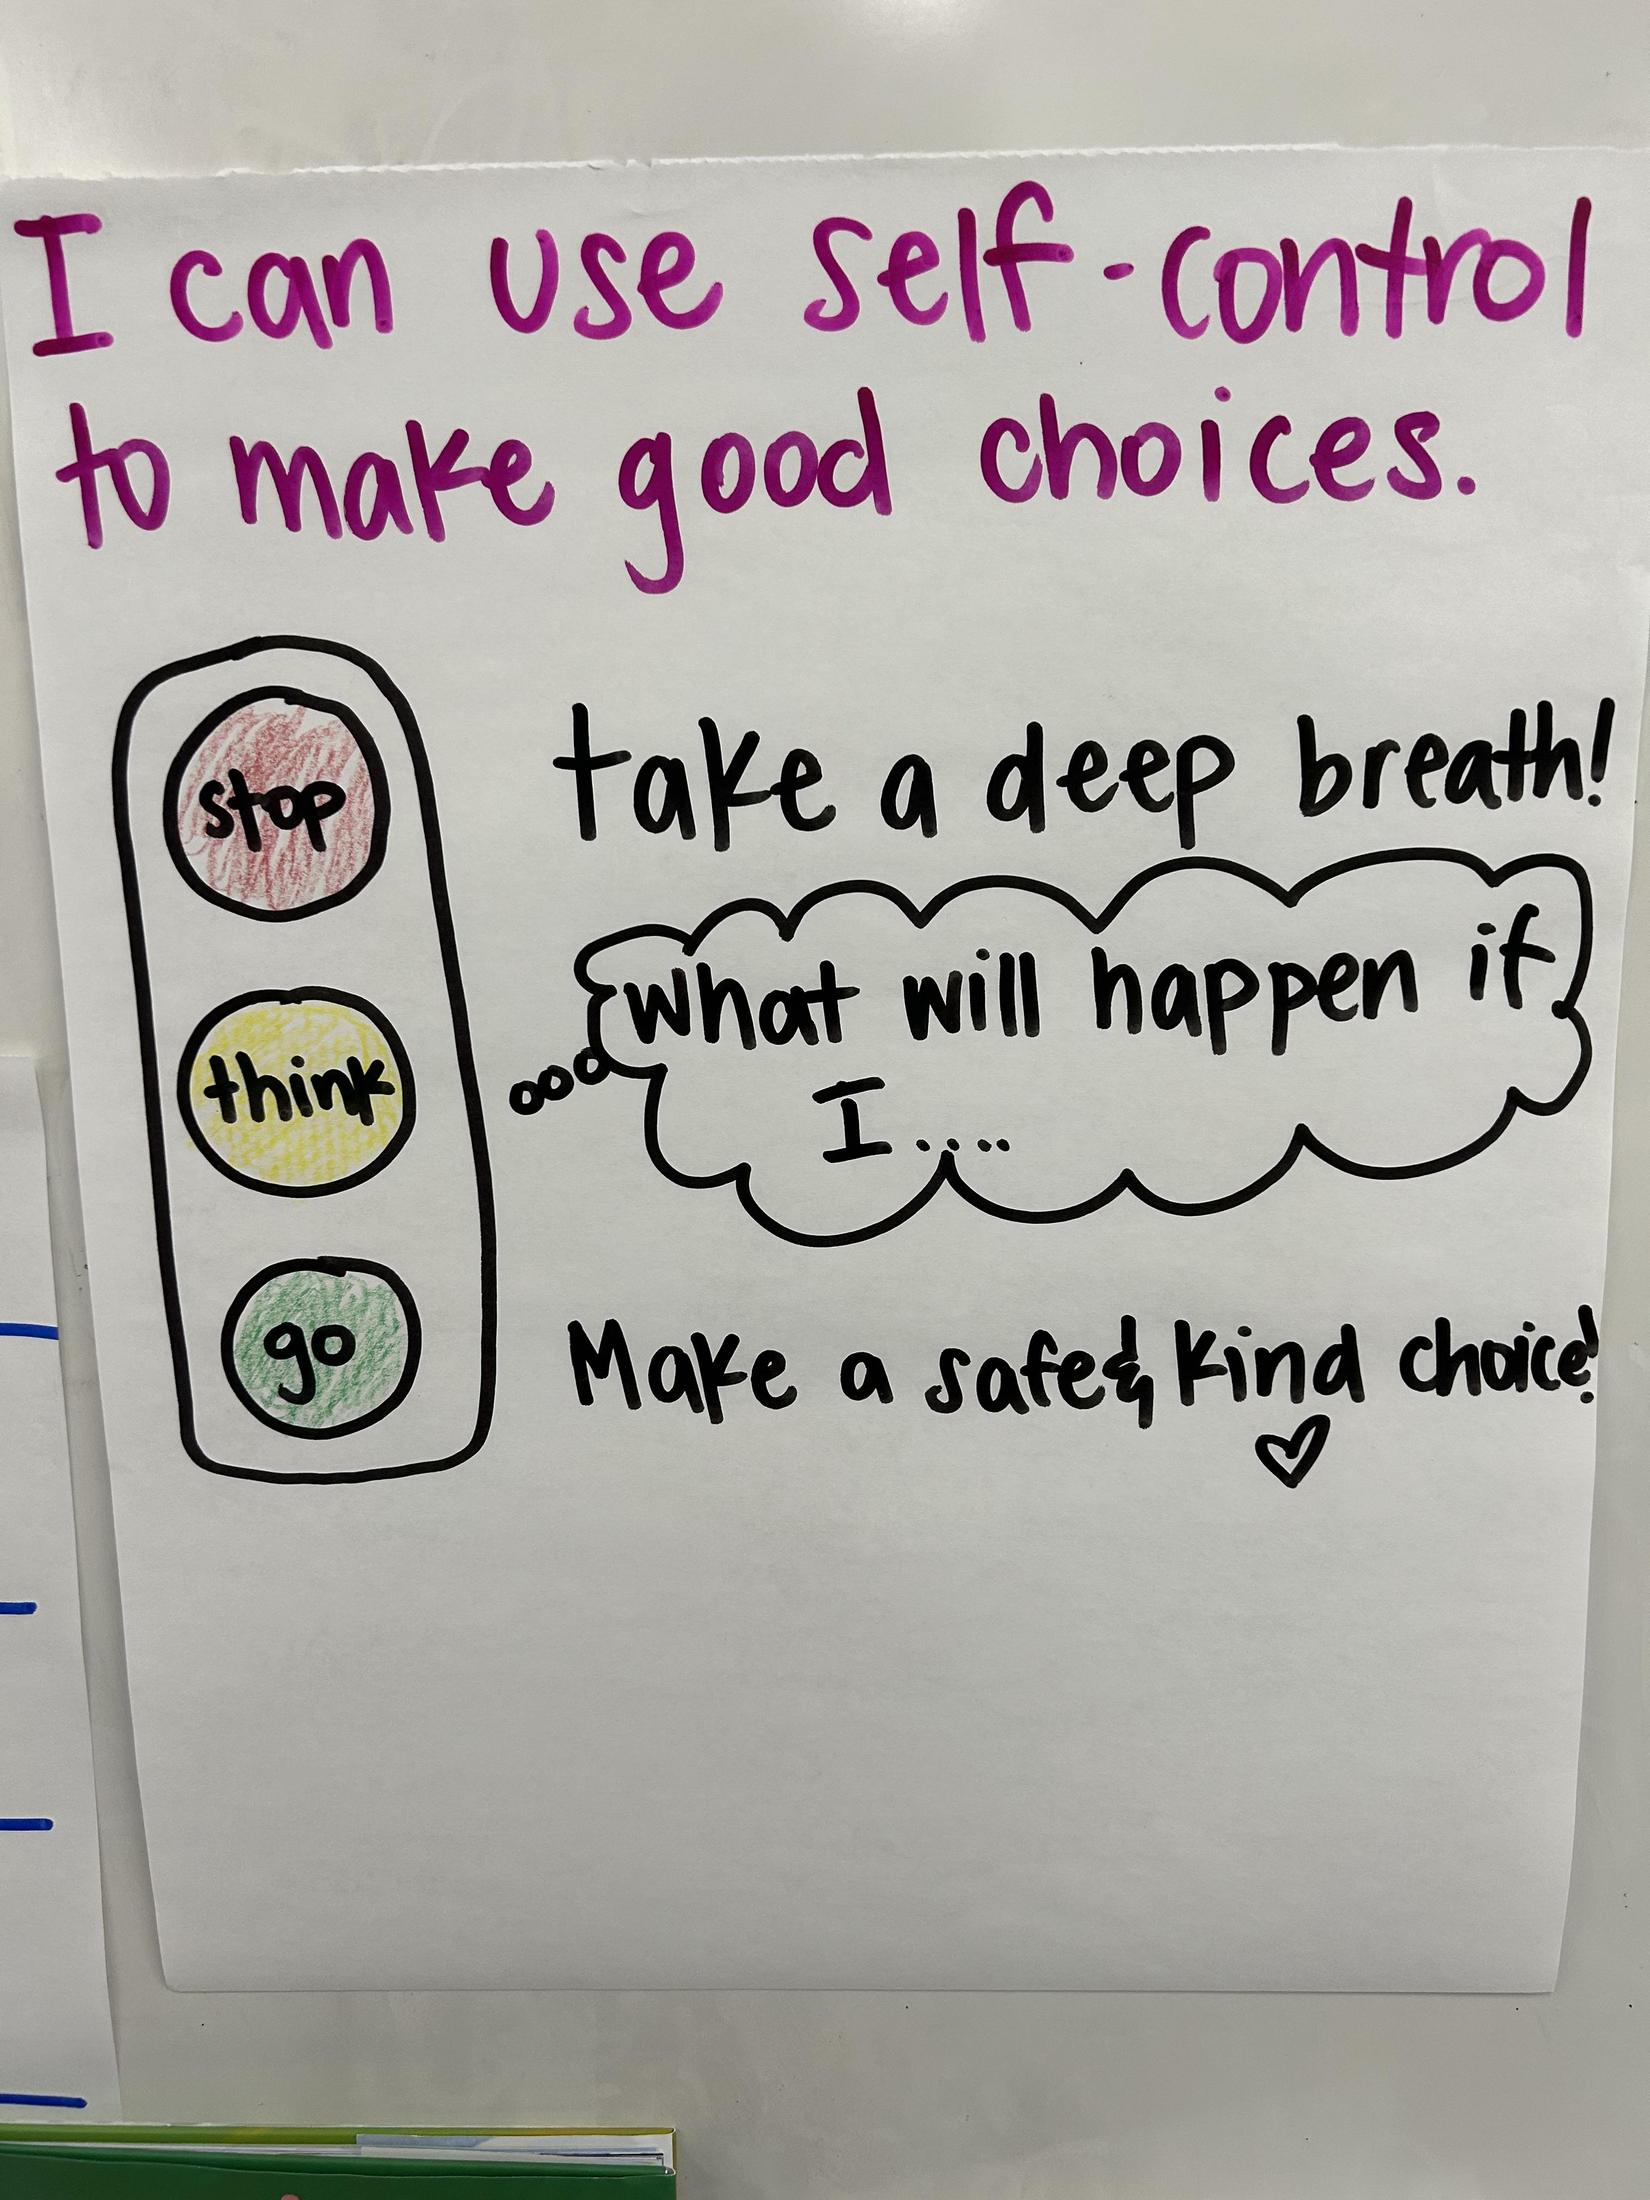 I can use self-control
to make good choices.
stop
take a deep breath!
think
what will happen if
I....
go
Make a safe & kind choice!